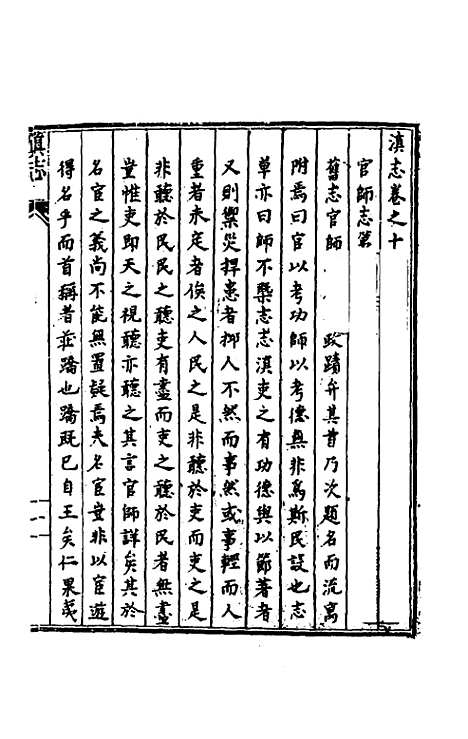 滇志卷之十
官師志第
舊志官師 政蹟弁其首乃次題名而流寓
附焉曰官以考功師以考德無非爲斯民設也志
草亦曰師不槩志志滇吏之有功德與以節著者
又則禦災捍患者抑人不然而事然或事輕而人
重者未定者俟之人民之是非聽於吏而吏之是
非聽於民民之聽吏有盡而吏之聽於民者無盡
豈惟吏即天之視聽亦聽之其言官師詳矣其於
名宦之義尚不能無置疑焉夫名宦豈非以宦遊
得名乎而首稱者莊蹻也蹻既已自王矣仁果羲
滇志